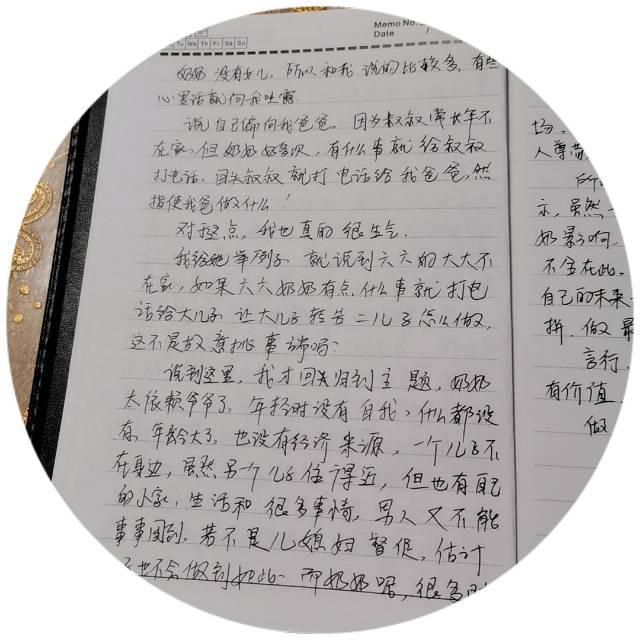 Memo No.
Date /
Tu We Th Fr Sa Su
奶奶没有女儿，所以和我说的比较多，有些
心里话就向我吐露
说自己偏向我爸爸，因为叔叔常年不
在家，但奶奶好多次，有什么事就给叔叔
打电话，回头叔叔就打电话给我爸爸，然
指使我爸做什么！
对于这点，我也真的很生气.
我给她举例子 就说到六六的大大不
在家，如果六六奶奶有点什么事就打电
话给大儿子 让大儿子转告二儿子怎么做，
这不是故意挑事端吗？
说到这里，我才回头归到主题，奶奶
太依赖爷爷了，年轻时没有自我，什么都没
有，年龄大了，也没有经济来源，一个儿子不
在身边，虽然另一个儿子住得近，但也有自己
的小家，生活和很多事情，男人又不能
事事周到，若不是儿媳妇督促，估计
也不会做到如此 而奶奶呢，很多
场，
人尊
所
示，虽然一
奶影响，
不全在此，
自己的未来
拼，做最
言行，
有价值
做